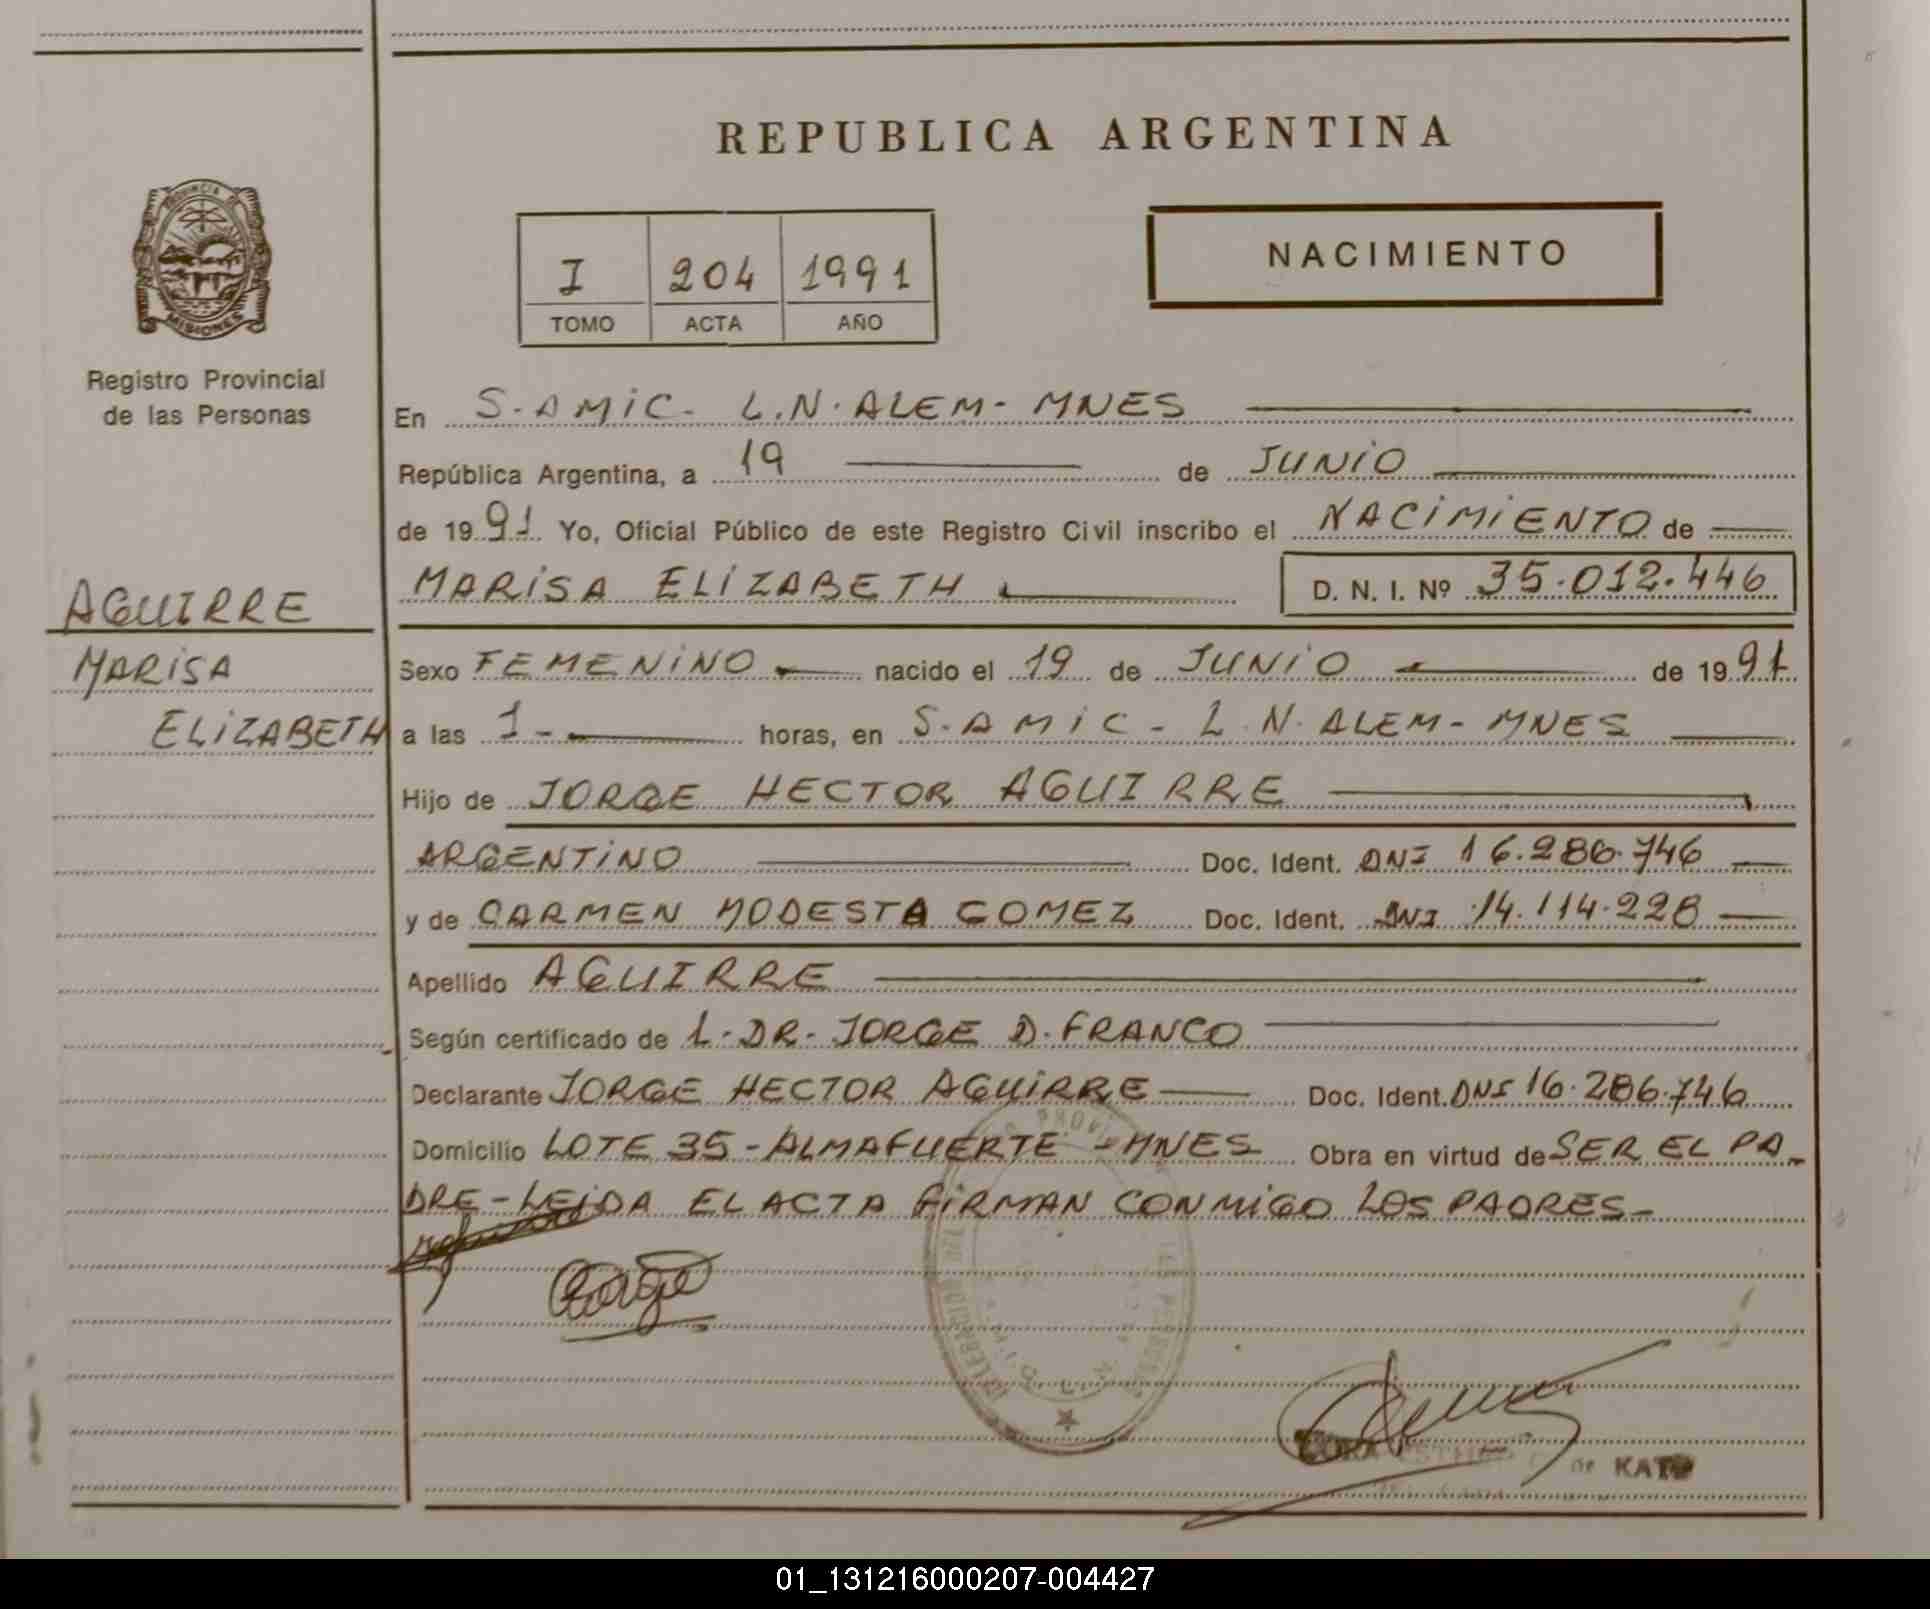 REPUBLICA ARGENTINA
PROVINCIA DE
MISIONES
Registro Provincial
de las Personas
I 204 1991
TOMO ACTA AÑO
NACIMIENTO
En S. AMIC - L.N. ALEM - MNES
República Argentina, a 19 de JUNIO
de 1991 Yo, Oficial Público de este Registro Civil inscribo el NACIMIENTO de
MARISA ELIZABETH D. N. I. Nº 35.012.446
AGUIRRE
MARISA
ELIZABETH
Sexo FEMENINO nacido el 19 de JUNIO de 1991
a las 1- horas, en S. AMIC - L.N. ALEM - MNES
Hijo de JORGE HECTOR AGUIRRE
ARGENTINO Doc. Ident. DNI 16.286.746
y de CARMEN MODESTA GOMEZ Doc. Ident. DNI 14.114.228
Apellido AGUIRRE
Según certificado de L. DR. JORGE D. FRANCO
Declarante JORGE HECTOR AGUIRRE Doc. Ident. DNI 16.286.746
Domicilio LOTE 35 - ALMAFUERTE - MNES Obra en virtud de SER EL PA-
DRE - LEIDA EL ACTA FIRMAN CONMIGO LOS PADRES -
de KATO
01_131216000207-004427